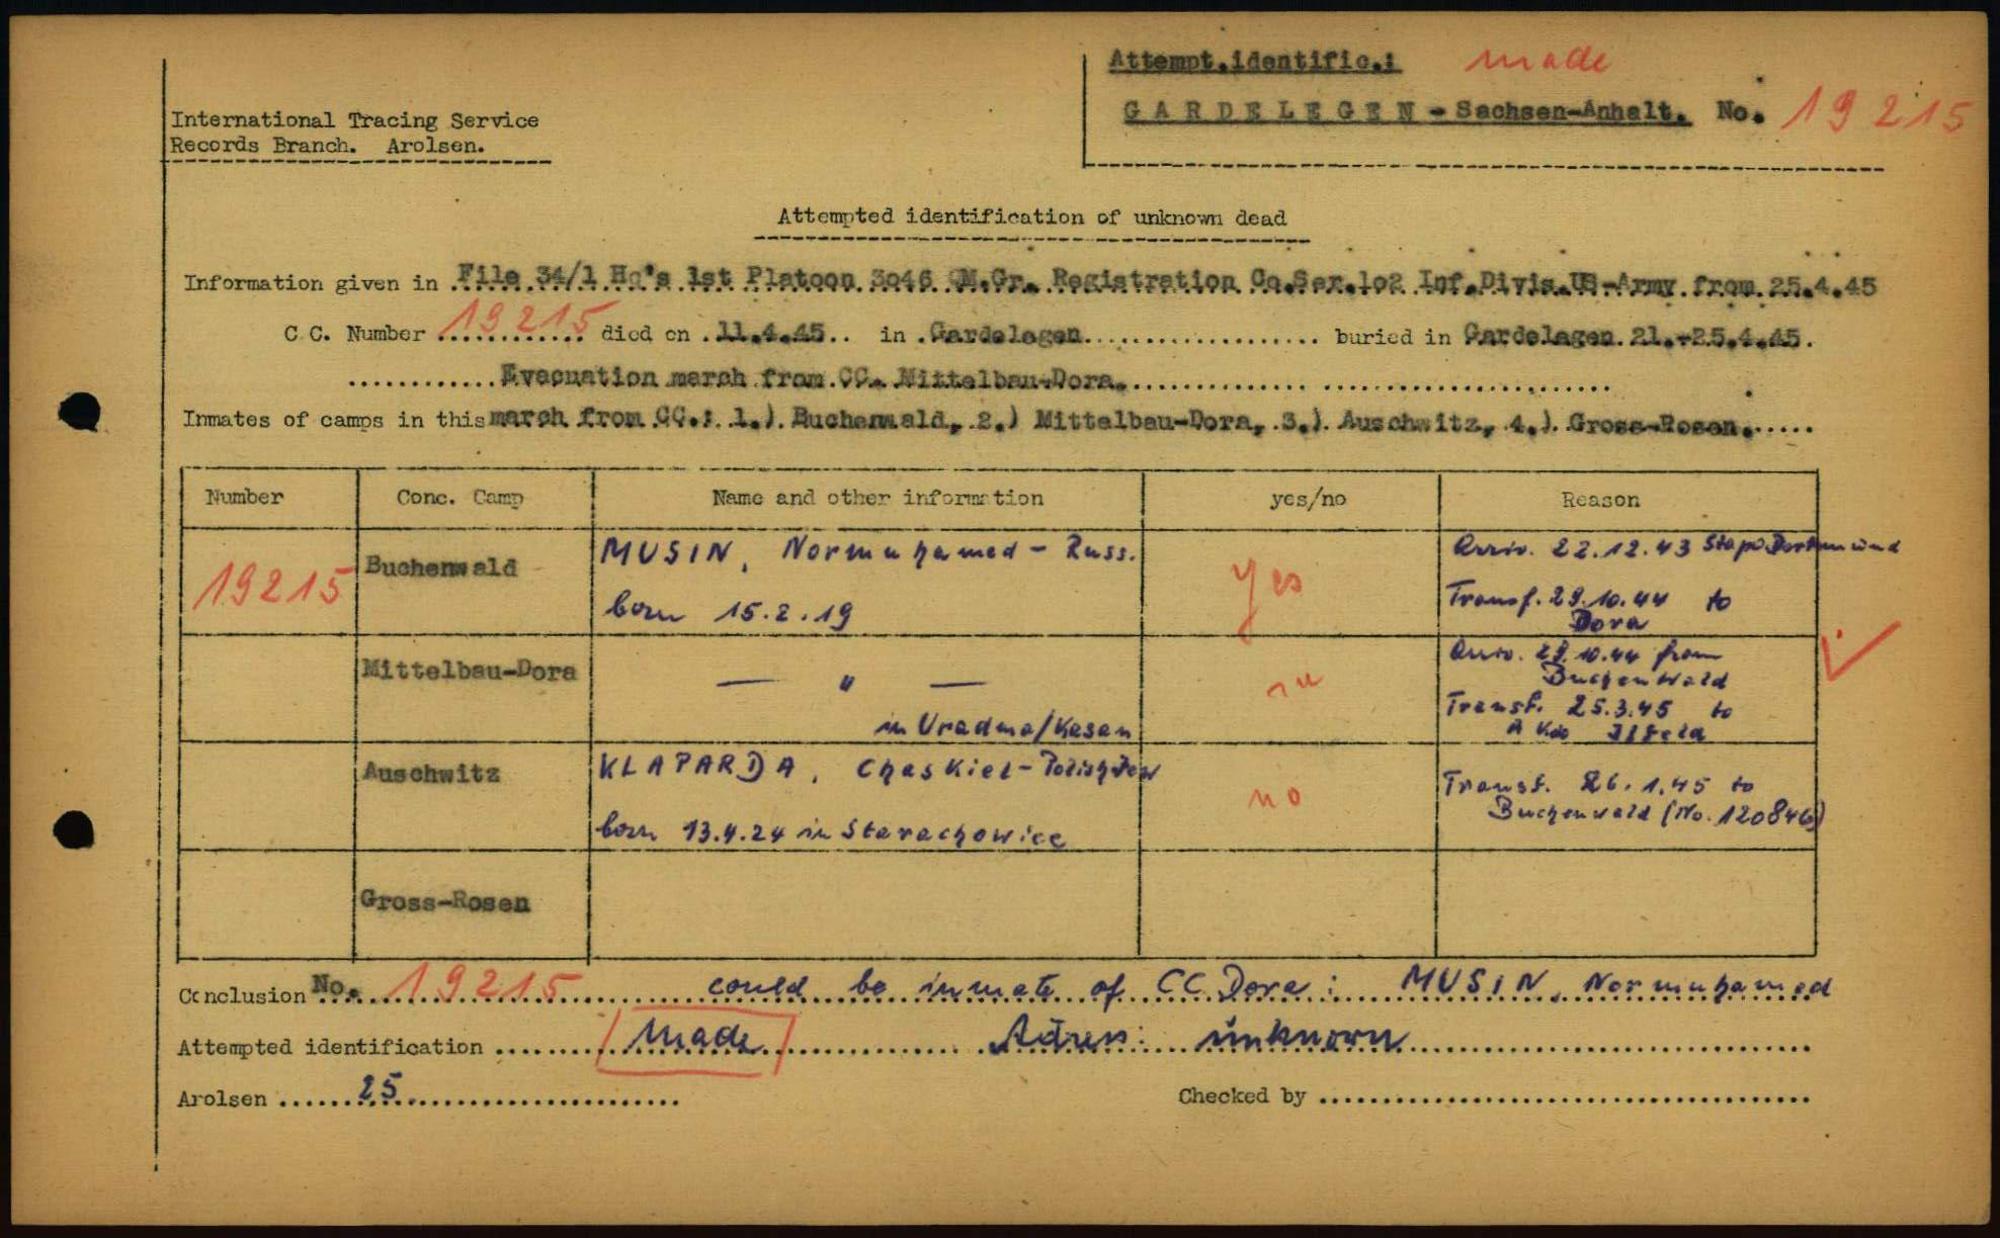 Attempt.identific.: made
GARDELEGEN - Sachsen-Anhalt. No. 19215
International Tracing Service
Records Branch. Arolsen.
Attempted identification of unknown dead
Information given in File 34/1 Hq's 1st Platoon 3o46 QM.Gr. Registration Co.Ser.1o2 Inf.Divis.US-Army from 25.4.45
C.C. Number 19215 died on 11.4.45 in Gardelegen buried in Gardelegen 21.-25.4.45.
Evacuation march from CC. Mittelbau-Dora.
Inmates of camps in this march from CC.: 1.) Buchenwald, 2.) Mittelbau-Dora, 3.) Auschwitz, 4.) Gross-Rosen.
Number Conc. Camp Name and other information yes/no Reason
19215 Buchenwald MUSIN, Normuhamed - Russ. yes Arriv. 22.12.43 Stapo Dortmund
born 15.2.19 Transf. 29.10.44 to
Dora
Mittelbau-Dora — " — Arriv. 29.10.44 from
Buchenwald
Transf. 25.3.45 to
in Uradma/Kasan A Kdo Ilfeld
Auschwitz KLAPARDA, Chaskiel - Polish Jew no Transf. 26.1.45 to
born 13.4.24 in Starachowice Buchenwald (No. 120846)
Gross-Rosen
Conclusion No. 19215 could be inmate of CC Dora: MUSIN, Normuhamed
Attempted identification made Adress: unknown
Arolsen 25 Checked by